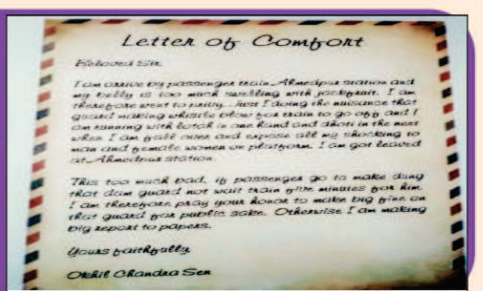 Letter of Comfort
Beloved Sir,
I am arrive by passenger train Ahmedpur station and
my belly is too much swelling with jackfruit. I am
therefore went to privy. Just I doing the nuisance that
guard making whistle blow for train to go off and I
am running with lotah in one hand and dhoti in the next
when I am fall over and expose all my shocking to
man and female women on platform. I am got leaved
at Ahmedpur station.
This too much bad, if passenger go to make dung
that dam guard not wait train five minutes for him.
I am therefore pray your honor to make big fine on
that guard for public sake. Otherwise I am making
big report to papers.
Yours faithfully
Okhil Chandra Sen